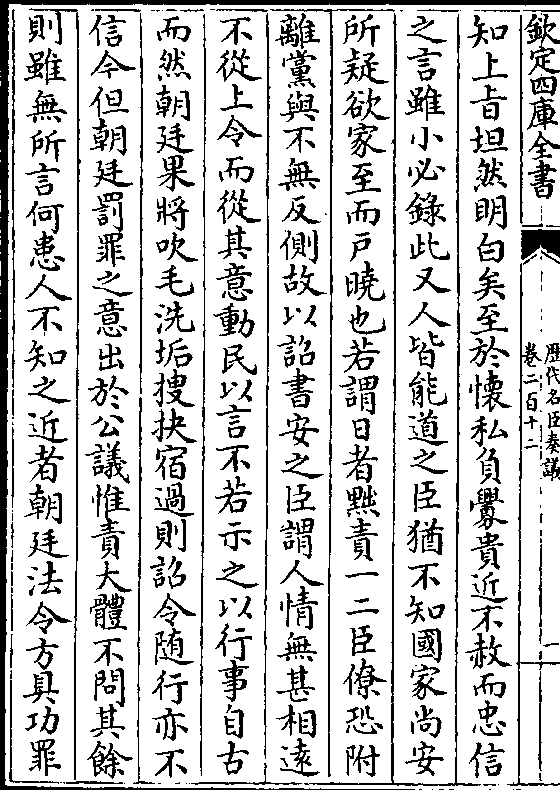 欽定四庫全書
歷代名臣奏議
卷二百十二
一
知上㫖坦然明白矣至於懷私負釁貴近不赦而忠信
之言雖小必錄此又人皆能道之臣猶不知國家尚安
所疑欲家至而戸曉也若謂日者黜責一二臣僚恐附
離黨與不無反側故以詔書安之臣謂人情無甚相遠
不從上令而從其意動民以言不若示之以行事自古
而然朝廷果將吹毛洗垢搜抉宿過則詔令随行亦不
信今但朝廷罰罪之意出於公議惟責大體不問其餘
則雖無所言何患人不知之近者朝廷法令方具功罪